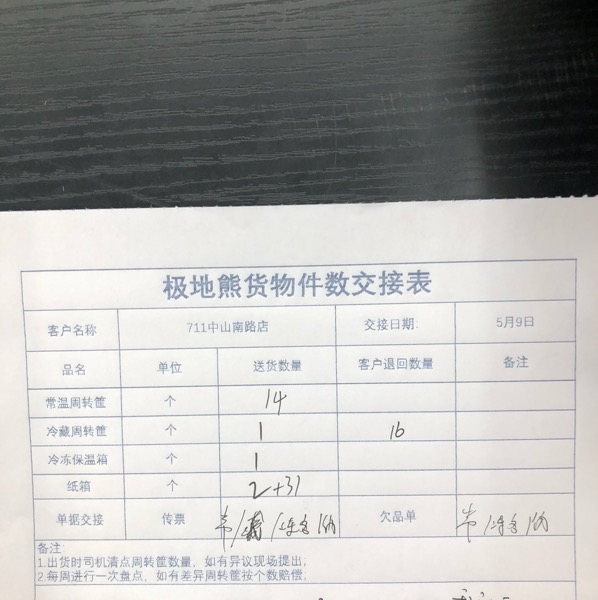 极地熊货物件数交接表
客户名称 711中山南路店 交接日期: 5月9日
品名 单位 送货数量 客户退回数量 备注
常温周转筐 个 14
冷藏周转筐 个 1 16
冷冻保温箱 个 1
纸箱 个 2+31
单据交接 传票 欠品单
备注:
1.出货时司机清点周转筐数量，如有异议现场提出;
2.每周进行一次盘点，如有差异周转筐按个数赔偿;